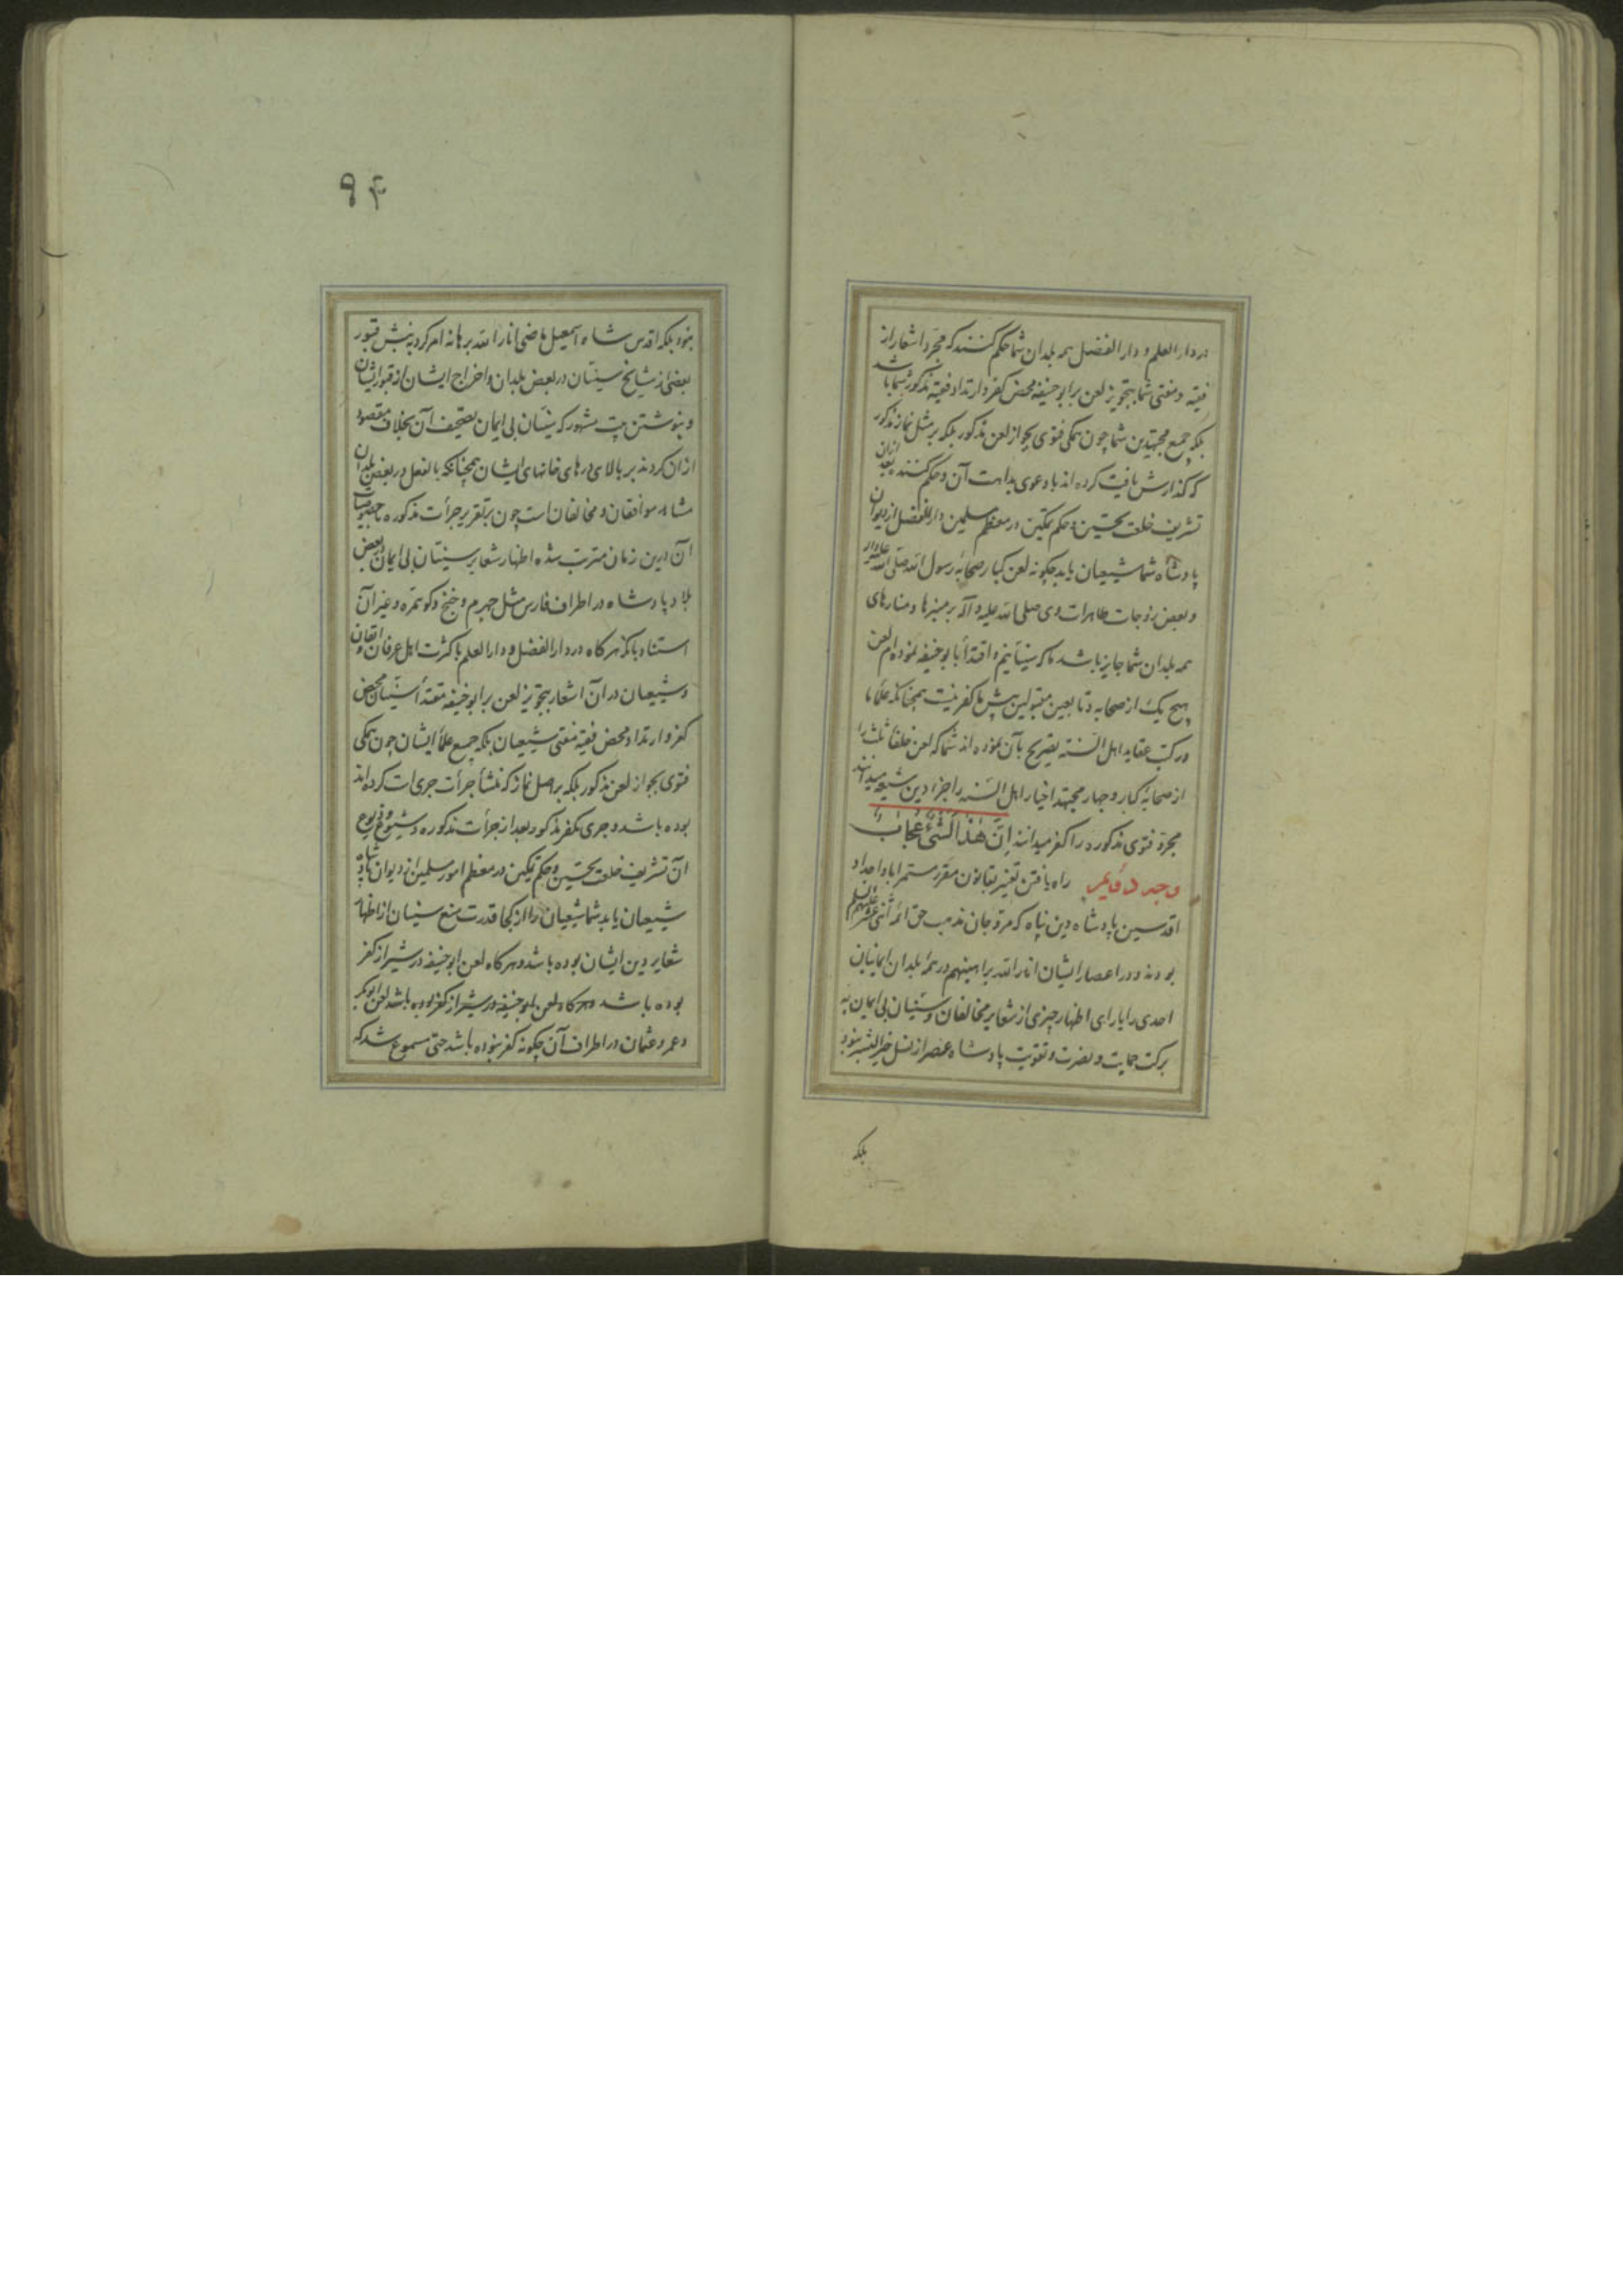 در دار العلم و دار الفضل همه بلدان شما حکم کنند که مجرد اشعار از
فقیه و مفتی شما بتجویز لعن بر ابو حنیفه محض کفر و ارتداد فقیه مذکور شما باشد
بلکه جمیع مجتهدین شما چون همکی فتوی بجواز لعن مذکور بلکه بر مثل نماز مذکور
که کذارش یافت کرده اند با دعوی بداهت آن و حکم کنند بعد ازان
تشریف خلعت تحسین و حکم تمکین در معظم مسلمین دار الفضل از دیوان
پادشاه شما شیعیان یابد چکونه لعن کبار صحابه رسول الله صلی الله علیه و آله
و بعض زوجات طاهرات وی صلی الله علیه و آله بر منبرها و منارهای
همه بلدان شما جایز باشد ما که سنیانیم و اقتدا بابو حنیفه نموده ایم لعن
هیچ یک از صحابه و تابعین مقبولین پیش ما کفر نیست همچنانکه علماء ما
در کتب عقاید اهل السنه تصریح بآن نموده اند شما که لعن خلفاء ثلث را
از صحابه کبار و چهار مجتهد اخیار اهل السنه را جزء دین شیعه میدانند
مجرد فتوی مذکوره را کفر میدانند اِنَّ هٰذا لَشَیْءٌ عُجابٌ
وجه دویم راه یافتن تغییر بقانون مقرر مستمر اباء و اجداد
اقدسین پادشاه دین پناه که مروجان مذهب حق ائمه اثنی عشر علیهم السلم
بودند و در اعصار ایشان انار الله براهینهم در همه بلدان ایمانیان
احدی را یارای اظهار چیزی از شعایر مخالفان و سنیان بی ایمان به
برکت حمایت و نصرت و تقویت پادشاه عصر از نسل خیر البشر نبود
بلکه
۹۴
نبود بلکه اقدس شاه اسمعیل ماضی انار الله برهانه امر کرد به نبش قبور
بعضی از مشایخ سنیان در بعض بلدان و اخراج ایشان از قبور ایشان
و بنوشتن بیت مشهور که سنیان بی ایمان تصحیف آن بخلاف مقصود
ازان کردند بر بالای درهای خانهای ایشان همچنانکه بالفعل در بعض بلدان
مشاهد موافقان و مخالفان است چون بتقریر جرأت مذکوره
آن درین زمان مترتب شده اظهار شعایر سنیان بی ایمان بعض
بلاد پادشاه در اطراف فارس مثل جهرم و خنج و کوهمره و غیر آن
استناد بانکه هر کاه در دار الفضل و دار العلم با کثرت اهل عرفان و اتقان
و شیعیان در آن اشعار بتجویز لعن بر ابو حنیفه مقتدأ سنیان محض
کفر و ارتداد محض فقیه مفتی شیعیان بلکه جمیع علماء ایشان چون همکی
فتوی بجواز لعن مذکور بلکه بر اصل نماز که منشأ جرأت جری است کرده اند
بوده باشد و جری مکفر مذکور بعد از جرأت مذکوره و شیوع و ذیوع
آن تشریف خلعت تحسین و حکم تمکین در معظم امور مسلمین از دیوان پادشاه
شیعیان یابد شما شیعیان را از کجا قدرت منع سنیان از اظهار
شعایر دین ایشان بوده باشد و هر کاه لعن ابو حنیفه در شیراز کفر
بوده باشد و هر کاه لعن ابو حنیفه در شیراز کفر بوده باشد لعن ابو بکر
و عمر و عثمان در اطراف آن چکونه کفر نبوده باشد حتی مسموع شد که